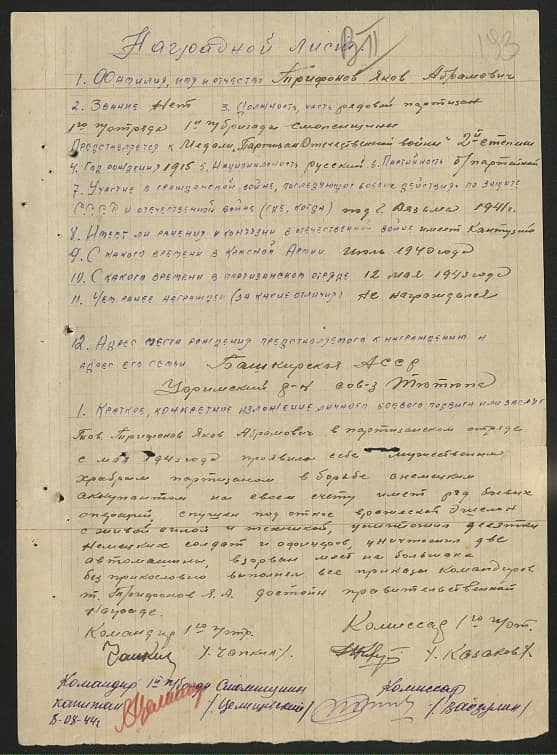 193
Наградной лист
1. Фамилия, имя и отчество Трифонов Яков Абрамович
2. Звание Нет 3. Должность, часть рядовой партизан
1го п/отряда 1й п/бригады Смоленщины
Представляется к Медали "Партизан Отечественной войны" 2й степени
4. Год рождения 1915 5. Национальность русский 6. Партийность б/партейный
7. Участие в гражданской войне, последующих боевых действиях по защите
СССР и отечественной войне (где, когда) под г. Вязьма 1941г.
8. Имеет ли ранения и контузии в отечественной войне имеет Кантузию
9. С какого времени в Красной Армии Июль 1940 года
10. С какого времени в партизанском отряде 12 мая 1943 года
11. Чем ранее награжден (за какие отличия) не награждался
12. Адрес места рождения представляемого к награждению и
адрес его семьи Башкирская АССР
р-н сов-з
1. Краткое, конкретное изложение личного боевого подвига или заслуг
Тов. Трифонов Яков Абрамович в партизанском отряде
с мая 1943 года проявил себя мужественным
храбрым партизаном в борьбе с немецким
оккупантом на своем счету имеет ряд боевых
операций спущен под откос вражеской эшелон
с живой силой и техникой, уничтожил десятки
немецких солдат и офицеров, уничтожил две
автомашины, взорван мост на большаке
без прикословно выполнял все приказы Командиров
т. Трифонов Я.А. достоин правительственной
Награде.
Командир 1го п/отр. Комиссар 1го п/от.
/Чапкин/ /Казаков/
Командир 1й п/бригады Смоленщины Комиссар
капитан
8-08-44г.